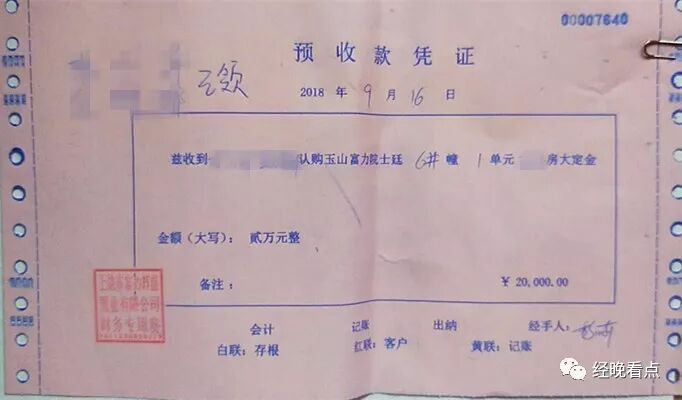 00007640
预收款凭证
已领
2018 年 9 月 16 日
兹收到 认购玉山富力院士廷 6# 幢 1 单元 房大定金
金额（大写）： 贰万元整
备注： ￥ 20,000.00
置业有限公司
财务专用章
会计 记账 出纳 经手人：
白联：存根 红联：客户 黄联：记账
经晚看点